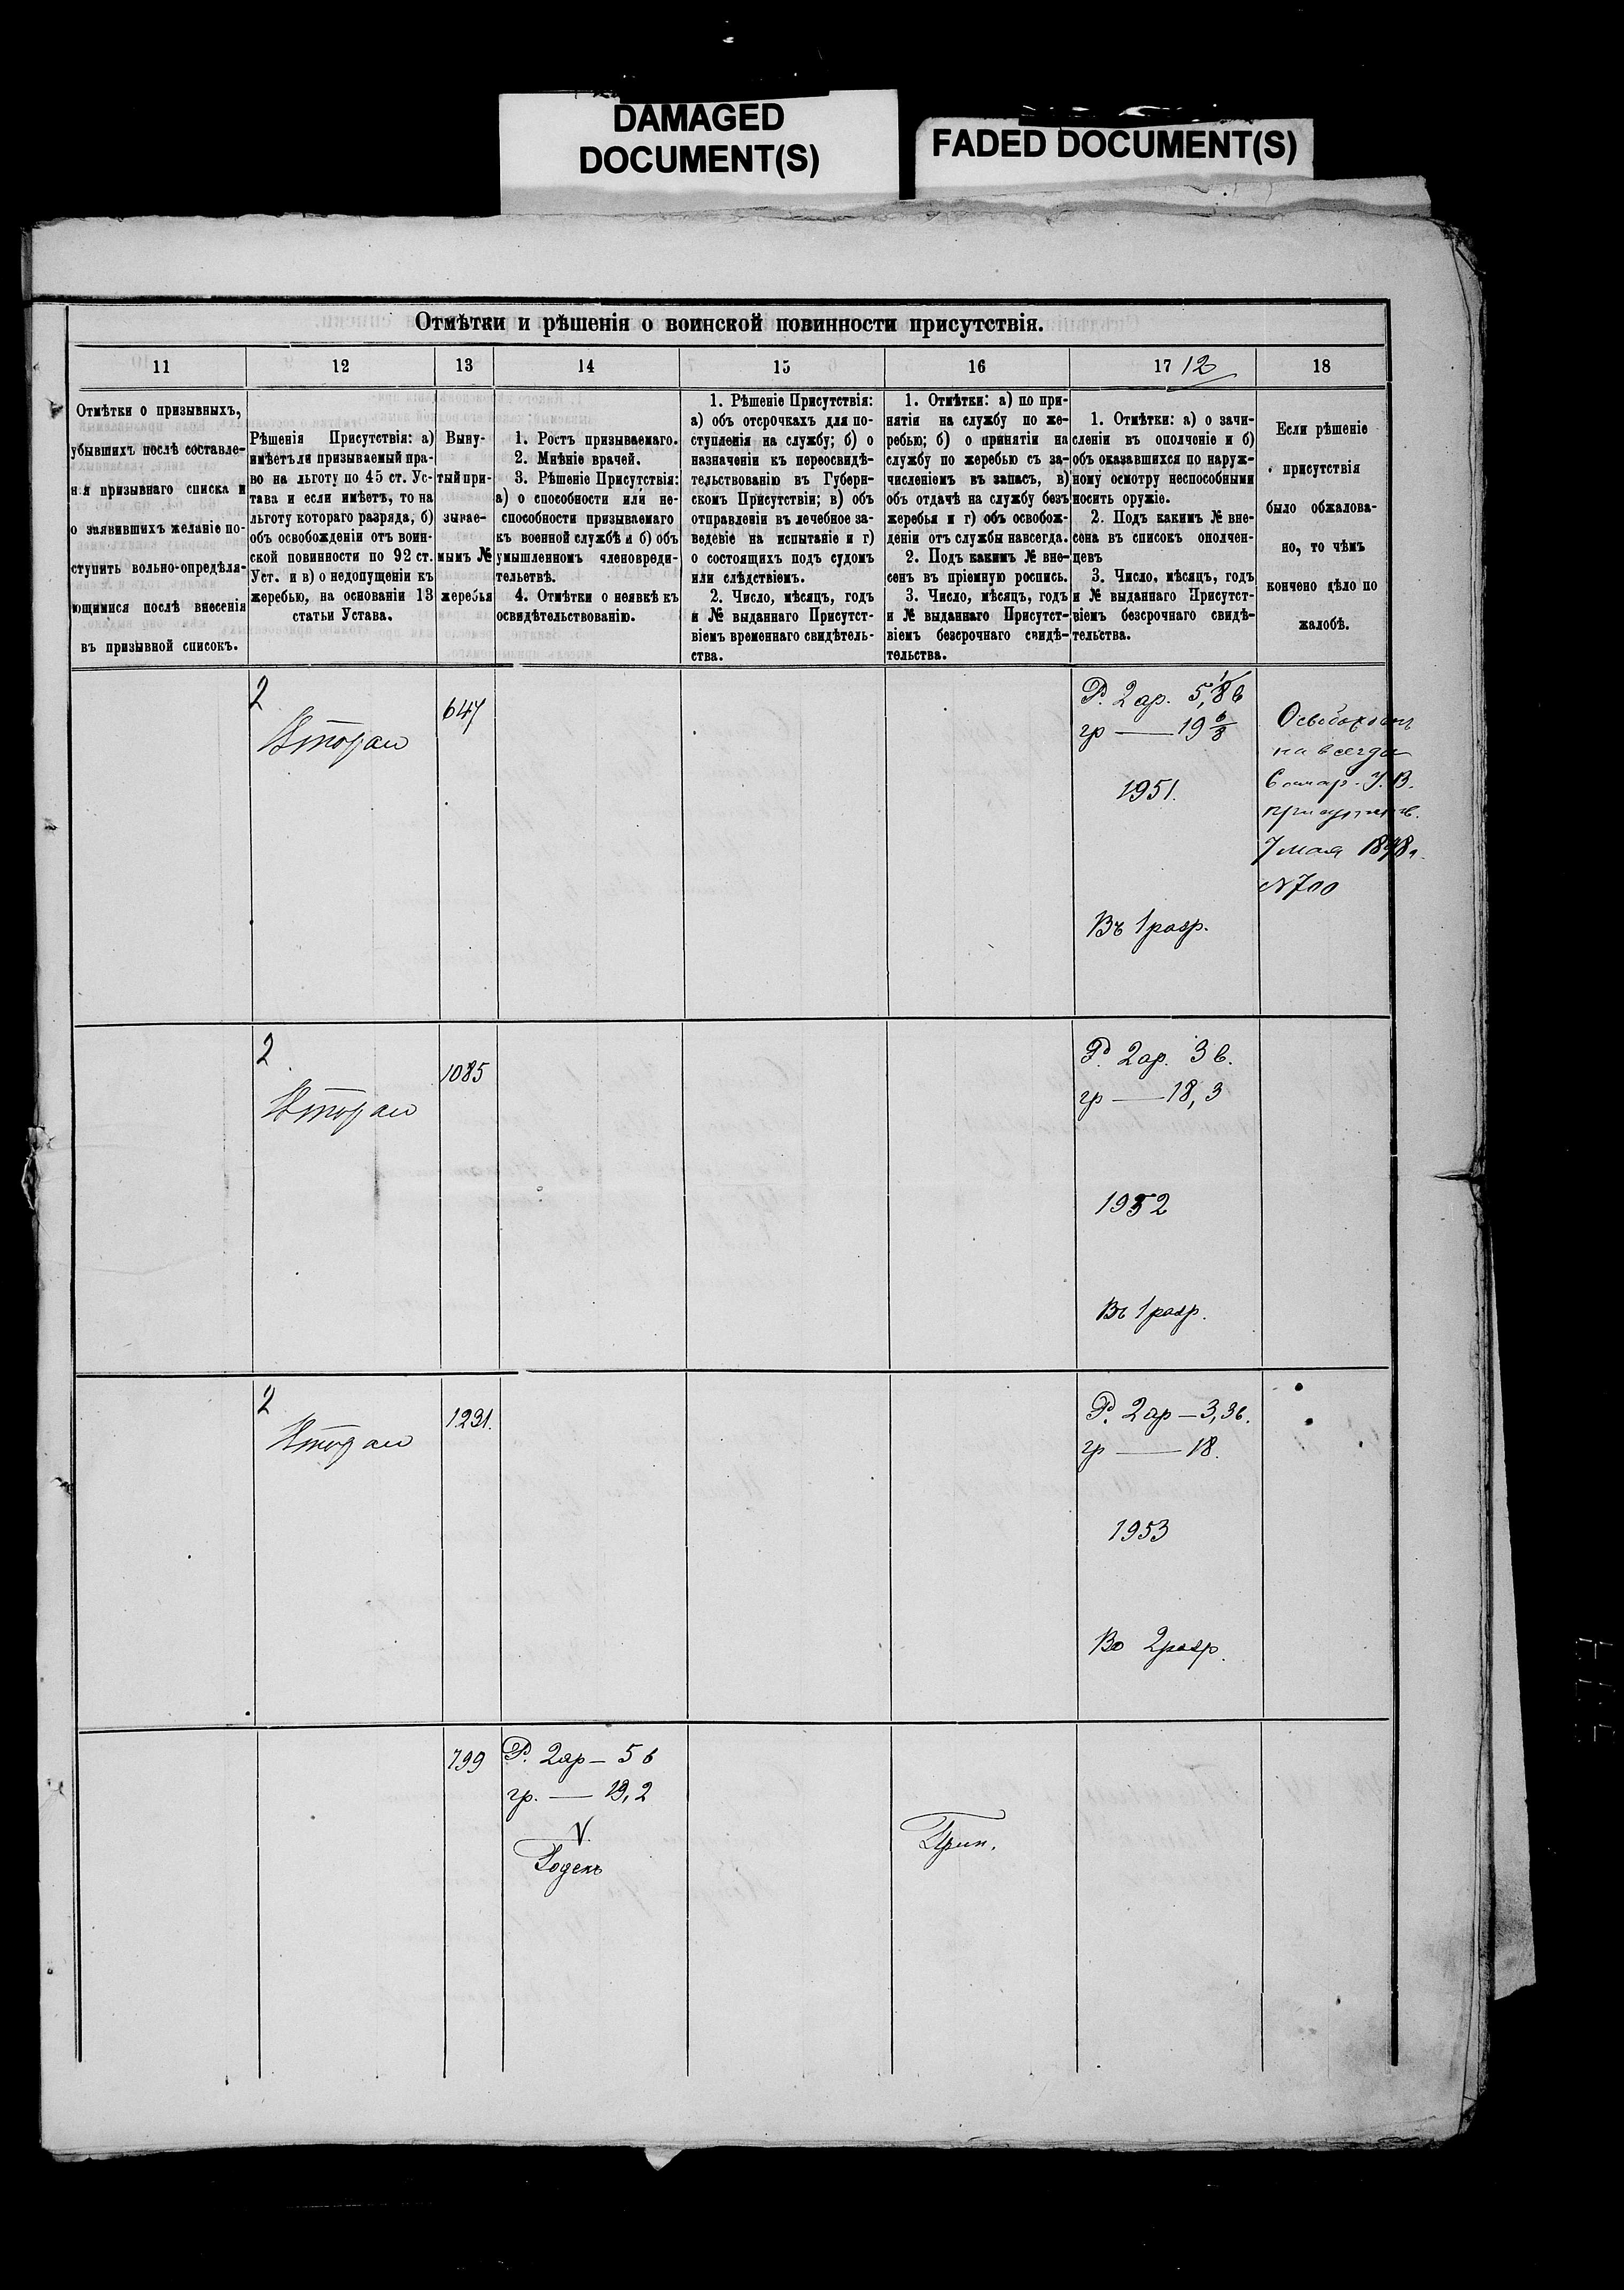 DAMAGED
DOCUMENT(S)
FADED DOCUMENT(S)
Отмѣтки и рѣшенія о воинской повинности присутствія.
11
12
13
14
15
16
17
12
18
Отмѣтки о призывныхъ,
убывшихъ послѣ составле-
нія призывнаго списка и
о заявившихъ желаніе по-
ступить вольно-опредѣля-
ющимися послѣ внесенія
въ призывной списокъ.
Рѣшенія Присутствія: а)
имѣетъ ли призываемый пра-
во на льготу по 45 ст. Ус-
тава и если имѣетъ, то на
льготу котораго разряда, б)
объ освобожденіи отъ воин-
ской повинности по 92 ст.
Уст. и в) о недопущеніи къ
жеребью, на основаніи 13
статьи Устава.
Выну-
тый при-
зывае-
мымъ №
жеребья
1. Ростъ призываемаго.
2. Мнѣніе врачей.
3. Рѣшеніе Присутствія:
а) о способности или не-
способности призываемаго
къ военной службѣ и б) объ
умышленномъ членовреди-
тельетвѣ.
4. Отмѣтки о неявкѣ къ
освидѣтельствованію.
1. Рѣшеніе Присутствія:
а) объ отсрочкахъ для по-
ступленія на службу; б) о
назначеніи къ переосвидѣ-
тельствованію въ Губерн-
скомъ Присутствіи; в) объ
отправленіи въ лечебное за-
веденіе на испытаніе и г)
о состоящихъ подъ судомъ
или слѣдствіемъ.
2. Число, мѣсяцъ, годъ
и № выданнаго Присутст-
віемъ временнаго свидѣтель-
ства.
1. Отмѣтки: а) по при-
нятіи на службу по же-
ребью; б) о принятіи на
службу по жеребью съ за-
численіемъ въ запасъ, в)
объ отдачѣ на службу безъ
жеребья и г) объ освобож-
деніи отъ службы навсегда.
2. Подъ какимъ № вне-
сенъ въ пріемную роспись.
3. Число, мѣсяцъ, годъ
и № выданнаго Присутст-
віемъ безсрочнаго свидѣ-
тельства.
1. Отмѣтки: а) о зачи-
сленіи въ ополченіе и б)
объ оказавшихся по наруж-
ному осмотру неспособными
носить оружіе.
2. Подъ какимъ № вне-
сена въ списокъ ополчен-
цевъ
3. Число, мѣсяцъ, годъ
и № выданнаго Присутст-
віемъ безсрочнаго свидѣ-
тельства.
Если рѣшеніе
присутствія
было обжалова-
но, то чѣмъ
кончено дѣло по
жалобѣ.
2
Вторая
647
Р. 2 ар.
гр — 19 6/8
1951.
Въ 1 разр.
Освобожденъ
на всегда
Самар. У. В.
присутств.
7 мая 1878 г.
№ 700
2
Вторая
1085
Р. 2 ар. 3 в.
гр — 18,3
1952
Въ 1 разр.
2
Вторая
1231.
Р. 2 ар — 3,3 в.
гр — 18.
1953
Во 2 разр.
799
Р. 2 ар — 5 в
гр. — 19,2
Годенъ
Прин.